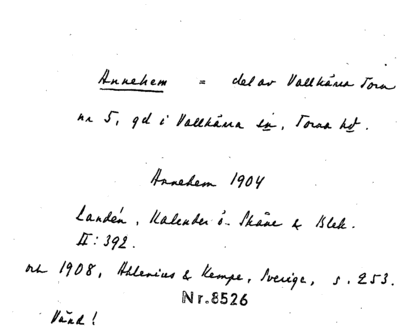 Annehem = del av Vallkärra Torn
nr 5, gd i Vallkärra sn, Torna hd.
Annehem 1904
Landén, Kalender ö. Skåne & Blek.
II: 392.
och 1908, Ahlenius & Kempe, Sverige, s. 253.
Nr. 8526
Vänd!